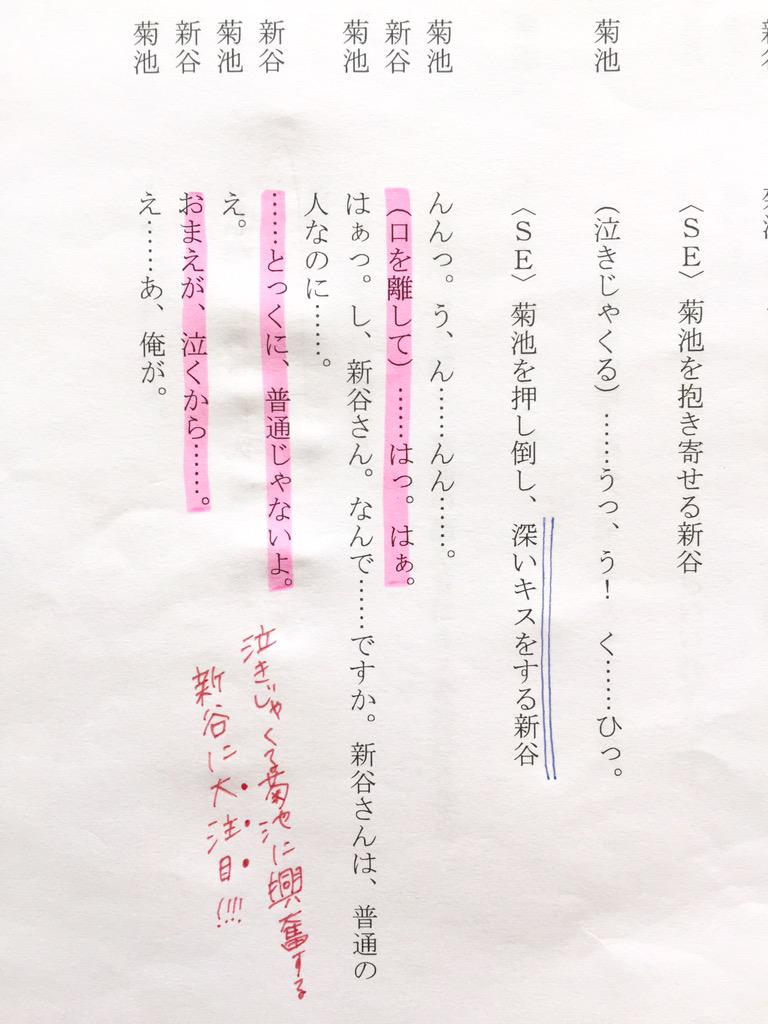 〈ＳＥ〉菊池を抱き寄せる新谷
菊池 （泣きじゃくる）……うっ、う！　く……ひっ。
〈ＳＥ〉菊池を押し倒し、深いキスをする新谷
菊池 んんっ。う、ん……んん……。
新谷 （口を離して）……はっ。はぁ。
菊池 はぁっ。し、新谷さん。なんで……ですか。新谷さんは、普通の
人なのに……。
新谷 ……とっくに、普通じゃないよ。
菊池 え。
新谷 おまえが、泣くから……。
菊池 え……あ、俺が。
泣きじゃくる菊池に興奮する
新谷に大注目!!!!